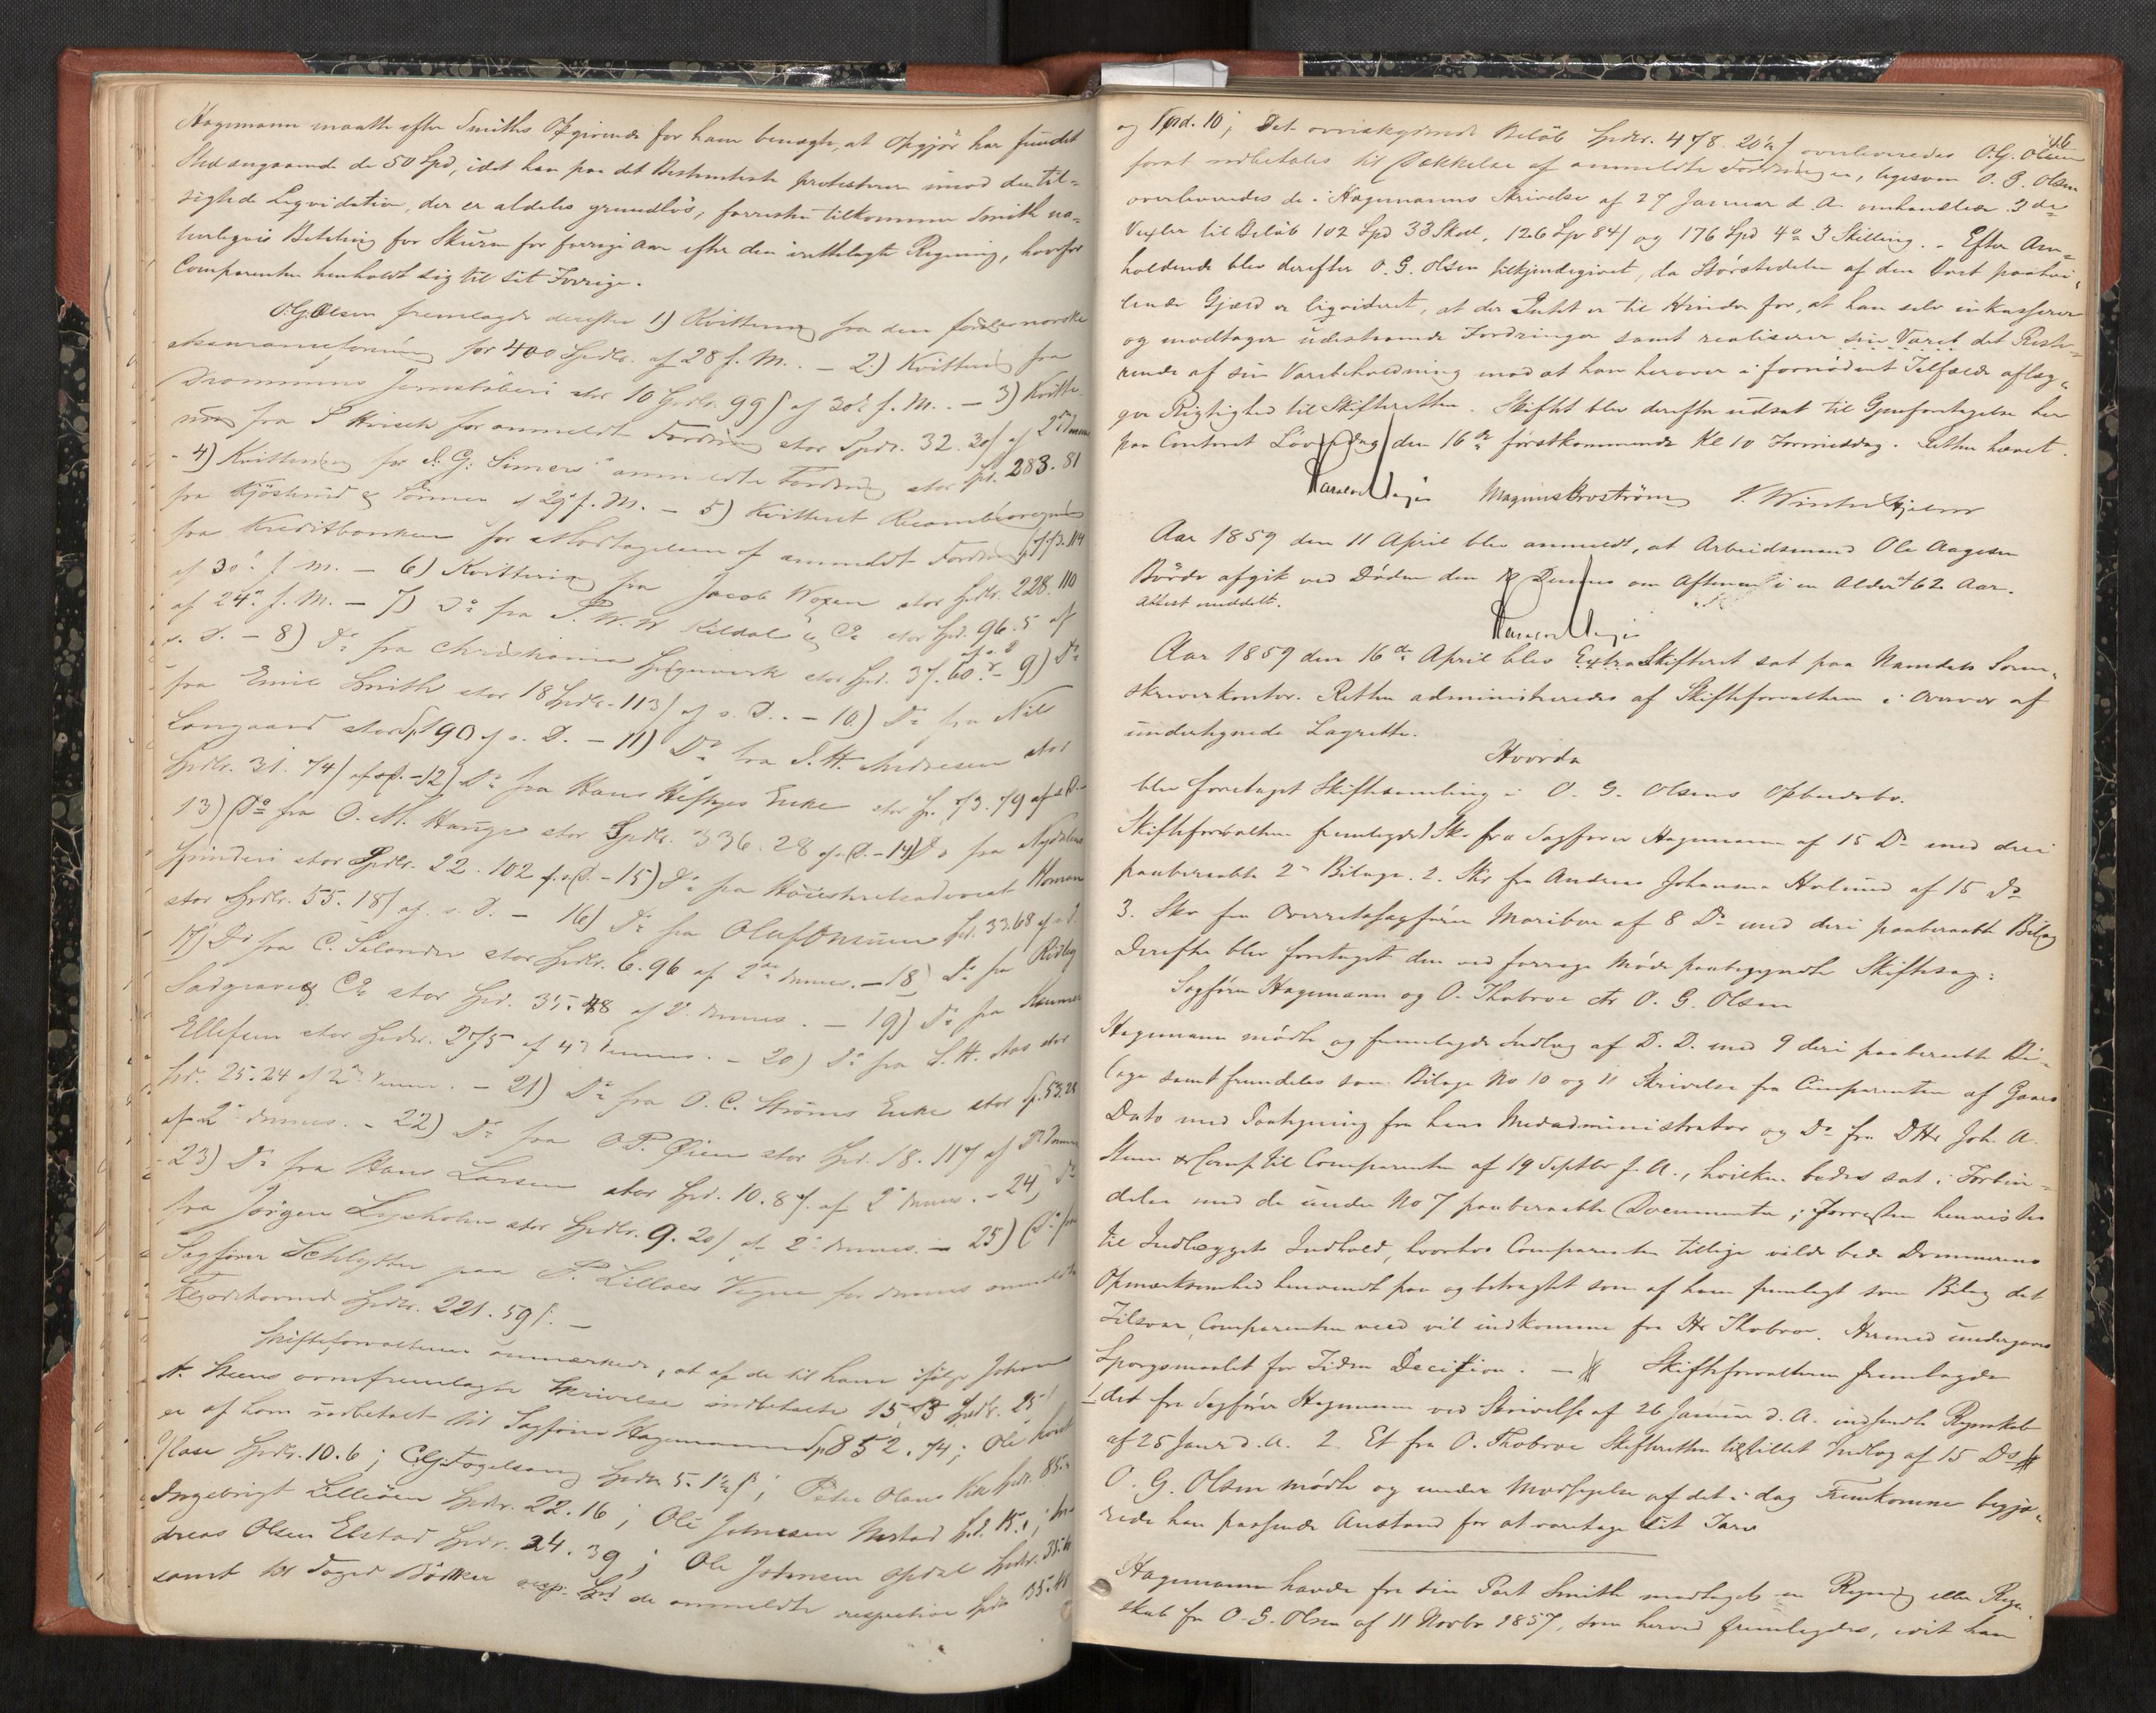 Hagemann maatte efter Smiths Opgivende for ham benægte, at Opgjør har fundet
Sted angaaende de 50 Spd, idet han paa det Bestemteste protesterer imod den til-
sigtede Liqvidation, der er aldeles grundløs, forresten tilkommer Smith na-
turligvis Betaling for Skuren for forrige Aar efter den irettelagte Regning, hvorfor
Comparenten henholdt sig til sit Forrige.
O.G. Olsen fremlagde derefter 1) Kvittering fra den norske
Assuranceforening for 400 Spdlr. af 28 f. M. - 2) Kvittering fra
Drammens Jernstøberi stor 10 Spdlr 99 ß af 30te f. M. - 3) Kvitte-
ring fra S Hirsch for anmeldt Fordring stor Spdr. 32. 30 ß af 2den
- 4) Kvittering for S. G. Simers anmeldte Fordring stor Spd. 283. 81
fra Kjøstrud & Sønner af 29 f. M. - 5) Kvitteret
fra Kreditbanken for Modtagelsen af anmeldt Fordring
af 30te f. M. - 6) Kvittering fra Jacob Woxen stor Spdlr. 228. 110
af 24de f. M. - 7) Do fra P. W. W Kildal & Co stor Spd. 96. 5 af
s. D. - 8) Do fra Christiania Spigerverk stor Spd. 37. 60 - 9) Do
fra Emil Smith stor 18 Spdlr. 113 ß af s. D. - 10) Do fra Nils
Langaard stor Sp 90 af s. D. - 11) Do fra J. H. Andresen stor
Spdlr. 31. 74 ß af s. D. - 12) Do fra Hans Heftyes Enke stor Sp. 73. 79 af s. D.
13) Do fra O. M. Hauge stor Spdlr. 336. 28 af s. D. - 14) Do fra Nydalens
Spinderi stor Spdlr. 22. 102 af s. D. - 15) Do fra Høiesteretsadvocat Homan
stor Spdlr. 55. 18 ß af s. D. - 16) Do fra Olaf Onsum Spd. 33. 68 af s. D.
17) Do fra C. Selander stor Spdlr. 6. 96 af 2den dennes. - 18) Do fra Ridley
Sadgrave & Co stor Spd. 35. 48 af 2 dennes. - 19) Do fra
Ellefsen stor Spdlr. 275 af 4de dennes. - 20) Do fra S. H. Aas stor
Spd. 25. 24 af 2den dennes. - 21) Do fra O. C. Strøms Enke stor Sp. 53. 28
af 2 dennes. - 22) Do fra O. P. Øien stor Spd. 18. 117 af 2 dennes
23) Do fra Hans Larsen stor Spd. 10. 8 ß. af 2 dennes. - 24) Do
fra Jørgen Lysholm stor Spdlr. 9. 20 ß af 2 dennes. - 25) Do fra
Sagfører Schlytter paa P. Lilloes Vegne for dennes anmeldte
Tilgodehavende Spdlr. 221. 59 ß. -
Skifteforvalteren anmærkede, at af de til ham ifølge Johan
A. Steens ovenfremlagte Skrivelse indbetalte Spdlr. 25 ß
er af ham udbetalt til Sagfører Hagemann Sp 852. 74; Ole
Spdlr. 10. 6; C. G. Fogelsang Spdlr 5. 1½ ß; Peter Olaus Vik Spdlr. 85.
Ingebrigt Lilleøien Spdlr. 22. 16; Ole Johnsen Mestad Spd. 15.; An-
dreas Olsen Elstad Spdr. 24. 39; Ole Johnsen Opdal Spdlr. 35.
samt til Foged Bødtker de anmeldte respective Spdlr 135. 48
46
og Spd. 10; Det overskydende Beløb Spdr. 478. 20½ ß overleveredes O.G. Olsen
forat udbetales til Dækkelse af anmeldte Fordringer, ligesom O. G. Olsen
overleveredes de i Hagemanns Skrivelse af 27 Januar d. A. omhandlede 3de
Vexler til Beløb 102 Spd 33 Skill, 126 Sp 84 ß og 176 Spd 4 3 Skilling. - Efter An-
holdende blev derefter O. G. Olsen tilkjendegivet, da Størstedelen af den Boet paahvi-
lende Gjæld er liqvideret, at der Intet er til Hinder for, at han selv inkasserer
og modtager udestaaende Fordringer samt realiserer sin Vareb det Reste-
rende af sin Varebeholdning mod at han herover i fornødent Tilfælde aflæg-
ger Rigtighed til Skifteretten. Skiftet blev derefter udsat til Gjenforetagelse her
paa Contoret Løverdag den 16de førstkommende Kl 10 Formiddag. Retten hævet.
Magnus Brostrøm V. Winter Hjelm
Aar 1859 den 11 April blev anmeldt, at Arbeidsmand Ole Aagesen
Børde afgik ved Døden den dennes om Aftenen i en Alder af 62 Aar.
Attest meddelt.
Aar 1859 den 16de April blev Extra Skifteret sat paa Namdals Soren-
skriverkontor. Retten administreredes af Skifteforvalteren i Overvær af
undertegnede Lagrette.
Hvorda
blev foretaget Skiftesamling i O. G. Olsens Opbudsbo.
Skifteforvalteren fremlagde 1 Skr fra Sagfører Hagemann af 15 Ds med deri
paaberaabte 2de Bilage. 2. Skr fra Andreas Johannes Hovlund af 15 Ds
3. Skr fra Overretssagfører Maribo af 8 Ds med deri paaberaabte Bilag
Derefter blev foretaget den ved forrige Møde paabegyndte Skiftesag:
Sagfører Hagemann og O. Thobroe ctr O. G. Olsen
Hagemann mødte og fremlagde Indlæg af D. D. med 9 deri paaberaabte Bi-
lage samt fremdeles som Bilage No 10 og 11 Skrivelse fra Comparenten af Gaars
Dato med Paategning fra hans Medadministrator og Do fra DHr Joh. A.
Steen & Comp til Comparenten af 19 Septbr f. A., hvilken bedes sat i Forbin-
delse med de under No 7 paaberaabte Documenter; Forresten henvistes
til Indlæggets Indhold, hvorhos Comparenten tillige vilde bede Dommerens
Opmærksomhed henvendt paa og betragtet som af ham fremlagt som Bilag det
Tilsvar Comparenten veed vil indkomme fra Hr Thobroe. Hermed undergaves
Spørgsmaalet for Tiden Decision. - Skifteforvalteren fremlagde
1 det fra Sagfører Hagemann ved Skrivelse af 26 Januar d. A. indsendte Regnskab
af 25 Januar d. A. 2. Et fra O. Thobroe Skifteretten tilstillet Indlæg af 15 Ds
O. G. Olsen mødte og under Modsigelse af det i dag Fremkomne begjæ-
rede han passende Anstand for at varetage sit Tarv
Hagemann havde fra sin Part Smith modtaget en Regning eller Regn-
skab fra O. G. Olsen af 11 Novbr 1857, som herved fremlagdes, idet han